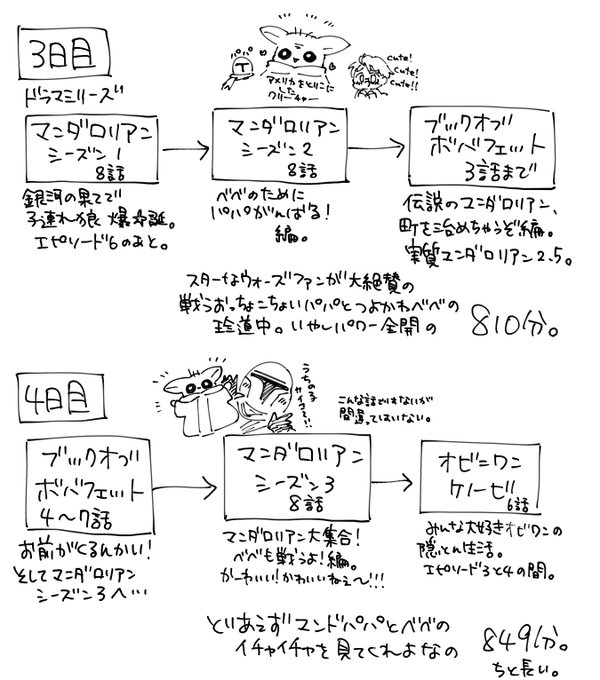 3日目
cute!
cute!
cute!!
アメリカをとりこに
した
クリーチャー
ドラマシリーズ
マンダロリアン
シーズン1
8話
マンダロリアン
シーズン2
8話
ブックオブ
ボバフェット
3話まで
銀河の果てで
子連れ狼 爆誕。
エピソード6のあと。
ベベのために
パパがんばる!
編。
伝説のマンダロリアン、
町を治めちゃうぞ編。
実質マンダロリアン2.5。
スターなウォーズファンが大絶賛の
戦うおっちょこちょいパパとつよかわベベの
珍道中。いやしパワー全開の
810分。
4日目
うちの子
カワイイ〜!!
こんな話ではないが
間違ってはいない。
ブックオブ
ボバフェット
4〜7話
マンダロリアン
シーズン3
8話
オビ=ワン
ケノービ
6話
お前がくるんかい!
そしてマンダロリアン
シーズン3へ…
マンダロリアン大集合!
ベベも戦うよ!編。
かーわいい!かわいいねぇ〜!!!
みんな大好きオビワンの
隠とん生活。
エピソード3と4の間。
とりあえずマンドパパとベベの
イチャイチャを見てくれよなの
849分。
ちと長い。